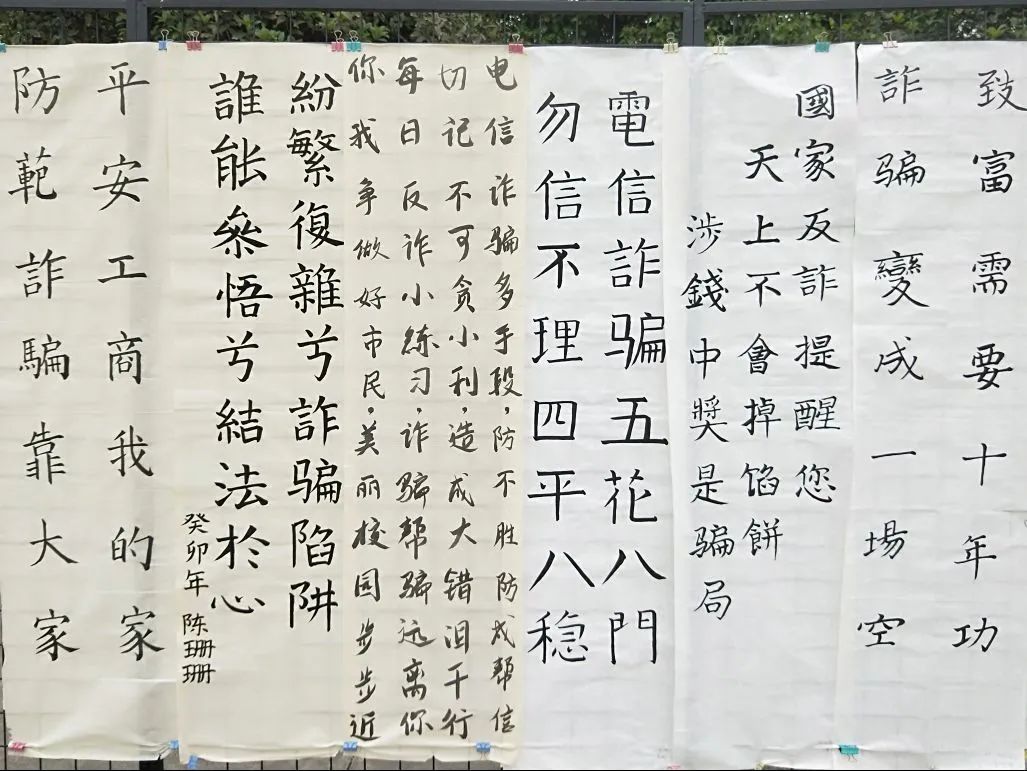 致富需要十年功
詐骗變成一場空
國家反詐提醒您
天上不會掉馅餅
涉錢中獎是骗局
電信詐骗五花八門
勿信不理四平八稳
电信诈骗多手段，防不胜防成帮信
切记不可贪小利，造成大错泪千行
每日反诈小练习，诈骗帮骗远离你
你我争做好市民，美丽校园步步近
紛繁復雜兮詐骗陷阱
誰能叅悟兮結法於心
癸卯年 陈珊珊
平安工商我的家
防範詐騙靠大家